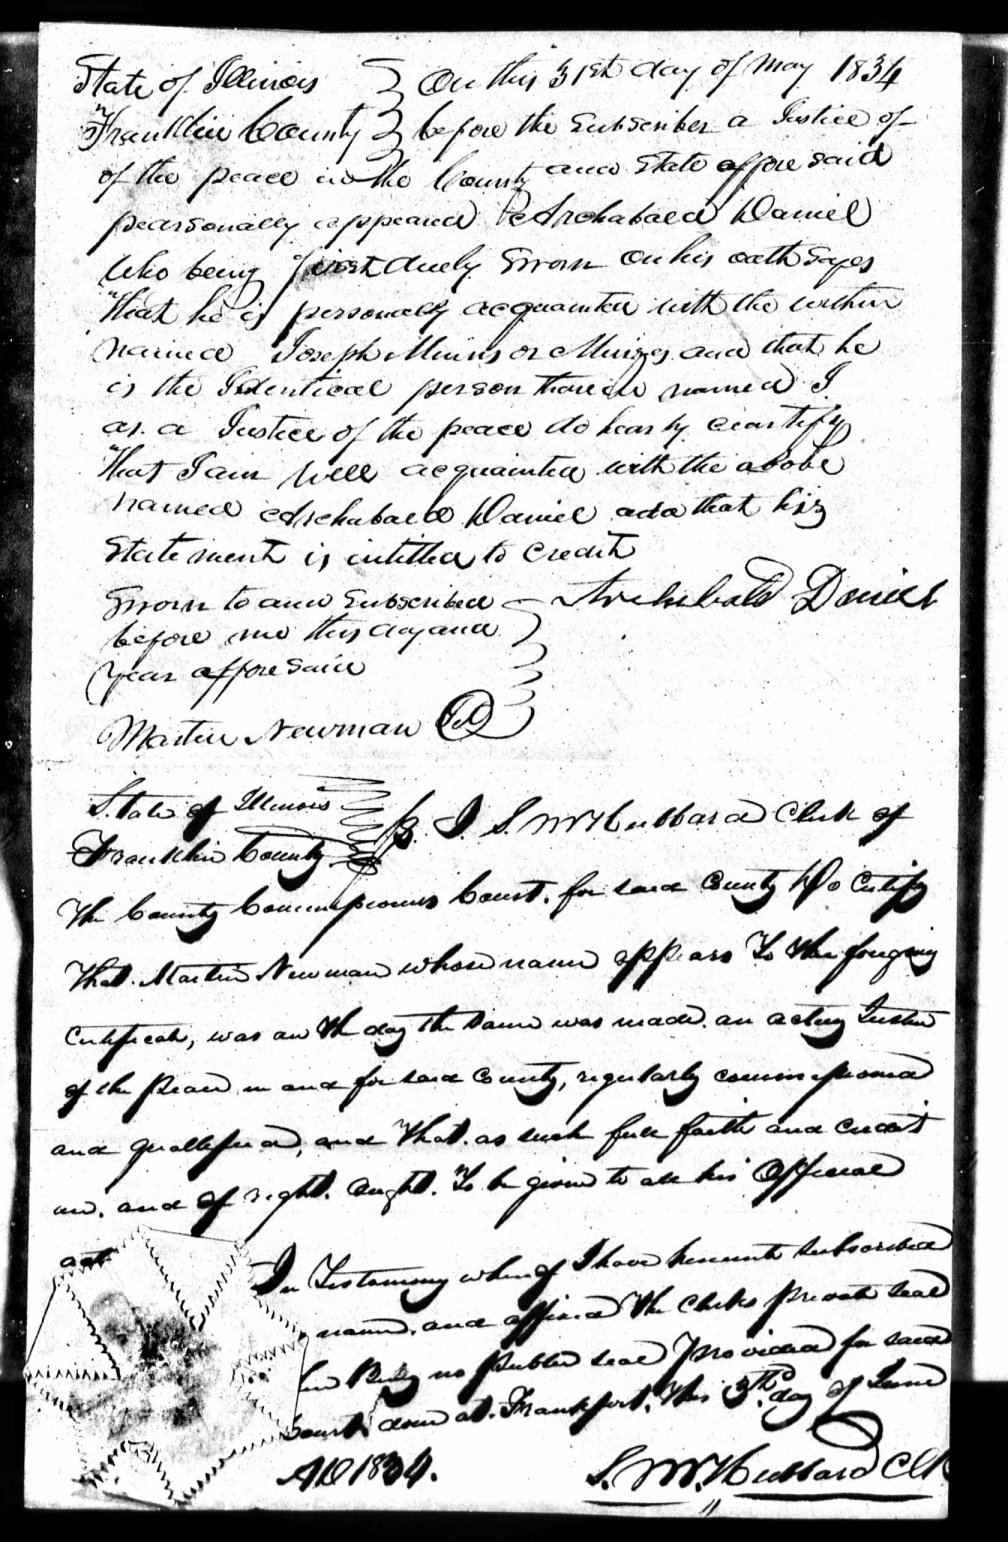 State of Illinois } On this 31st day of May 1834
Franklin County } before the Subscriber a Justice of
of the peace in the County and State affore said
pearsonally appeared Archabald Daniel
who being first duely Sworn on his oath Sayes
that he is personally acquainted with the within
named Joseph Mims or and that he
is the Identical person named I
as a Justice of the peace do hearby ceartify
that I am well acquainted with the above
named Archabald Daniel and that his
Statement is intitled to Credit
Sworn to and Subscribed Archabald Daniel
before me this day and
year affore said
Martin Newman
State of Illinois
Franklin County } I S. M Hubbard Clerk of
The County Commissioners Court, for said County Do Certify
That Martin Newman whose name appears To the forgoing
Certificate, was on the day the Same was made an acting Justice
of the Peace in and for said County, regularly commissioned
and quallified, and That as such full faith and Credit
are, and of right, ought, To be given to all his Official
acts
In Testamony whereof I have hereunto subscribed
name, and affixed The Clerks private seal
Being no Public seal Provided for said
Court, done at Frankfort, This 3th day of June
AD 1834.
S. M Hubbard Clk